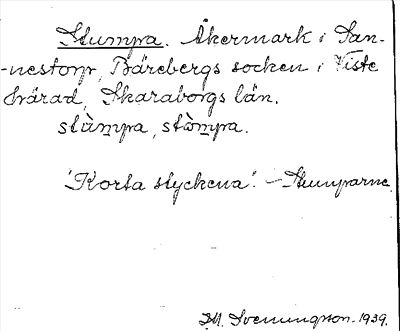 Stumpa. Åkermark i San-
-nestorp, Bärebergs socken i Viste
härad, Skaraborgs län.
stùmpa, stòmpa.
"Korta styckena". - Stumparne.
M. Svenungson. 1939.